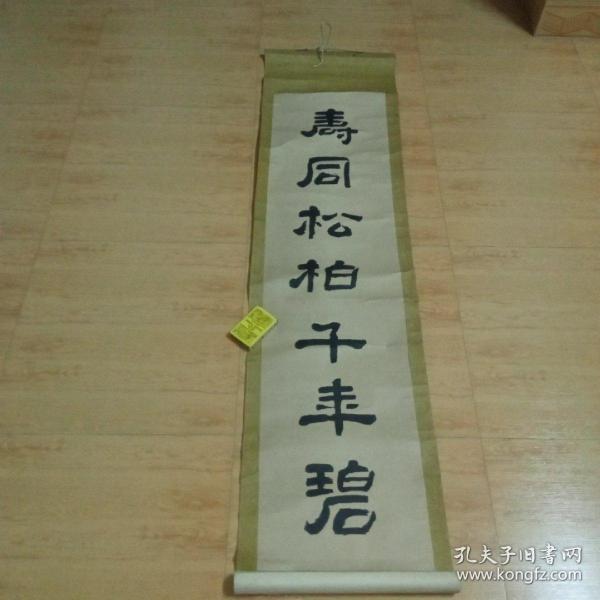 寿同松柏千年碧
孔夫子旧书网
www.kongfz.com